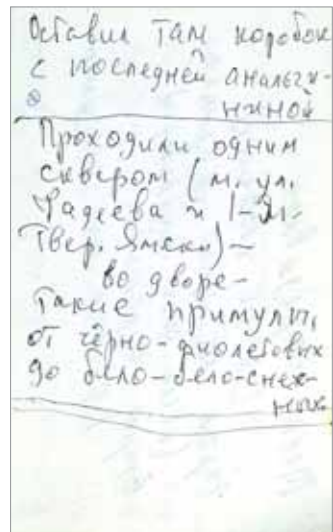 Оставил там коробок
с последней анальги-
ниной
Проходили одним
сквером (м. ул.
Фадеева и 1-й
Твер. Ямской) –
во дворе –
Такие примулы,
от чёрно-фиолетовых
до бело-бело-снеж-
ных